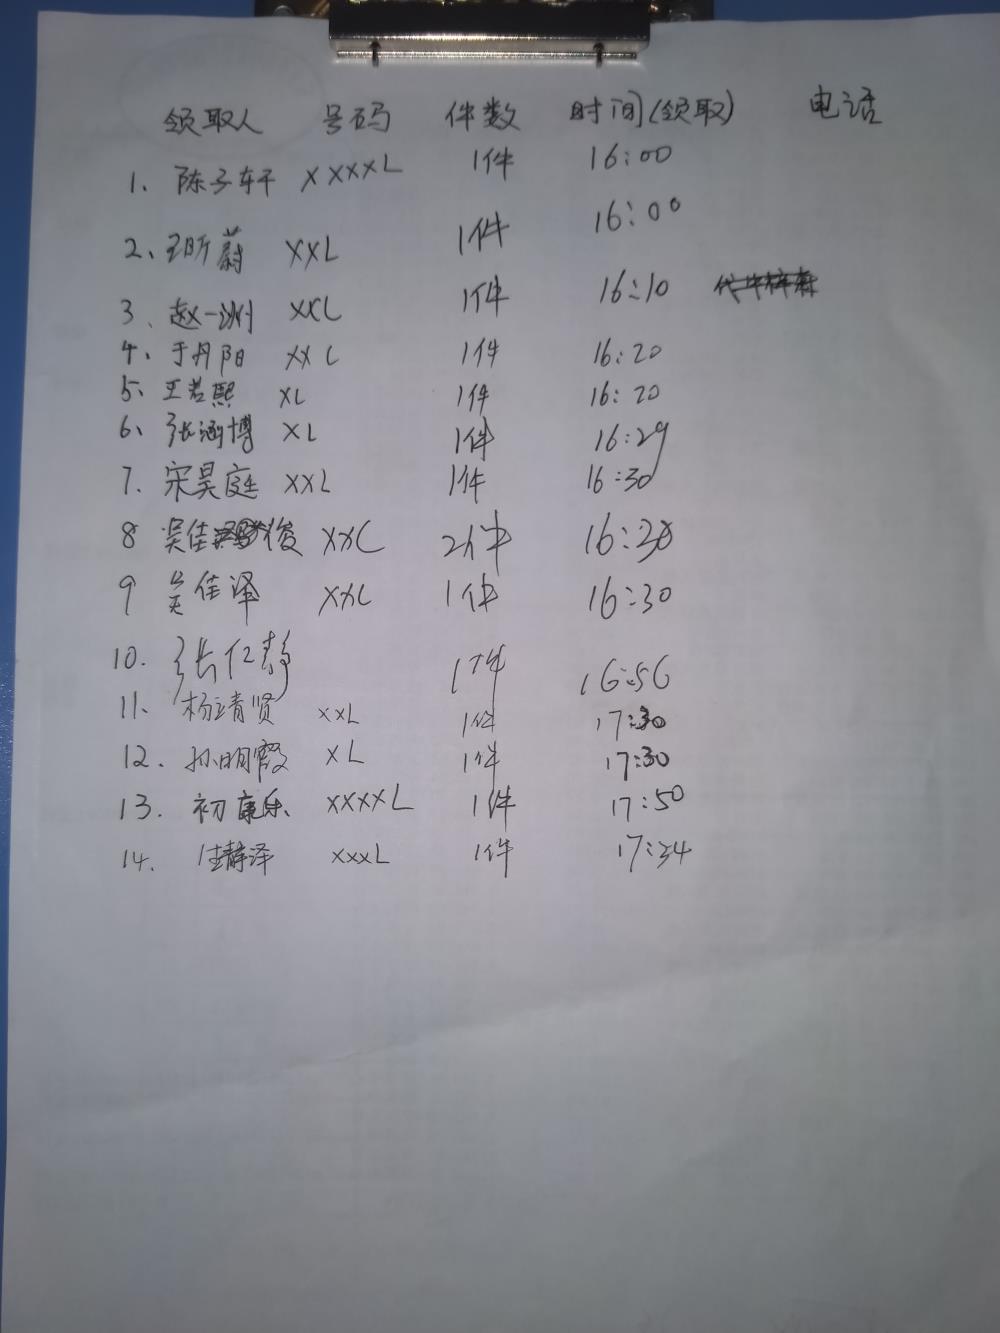 领取人 号码 件数 时间(领取) 电话
1、陈子轩 XXXXL 1件 16:00
2、王昕蔚 XXL 1件 16:00
3、赵一洲 XXL 1件 16:10
4、于丹阳 XXL 1件 16:20
5、王若熙 XL 1件 16:20
6、张涵博 XL 1件 16:29
7. 宋昊庭 XXL 1件 16:30
8 吴佳俊 XXL 2件 16:30
9 吴佳泽 XXL 1件 16:30
10. 张仁静 1件 16:56
11、杨靖贤 XXL 1件 17:30
12. 孙明霞 XL 1件 17:30
13. 初康乐 XXXXL 1件 17:50
14. 静泽 XXXL 1件 17:34